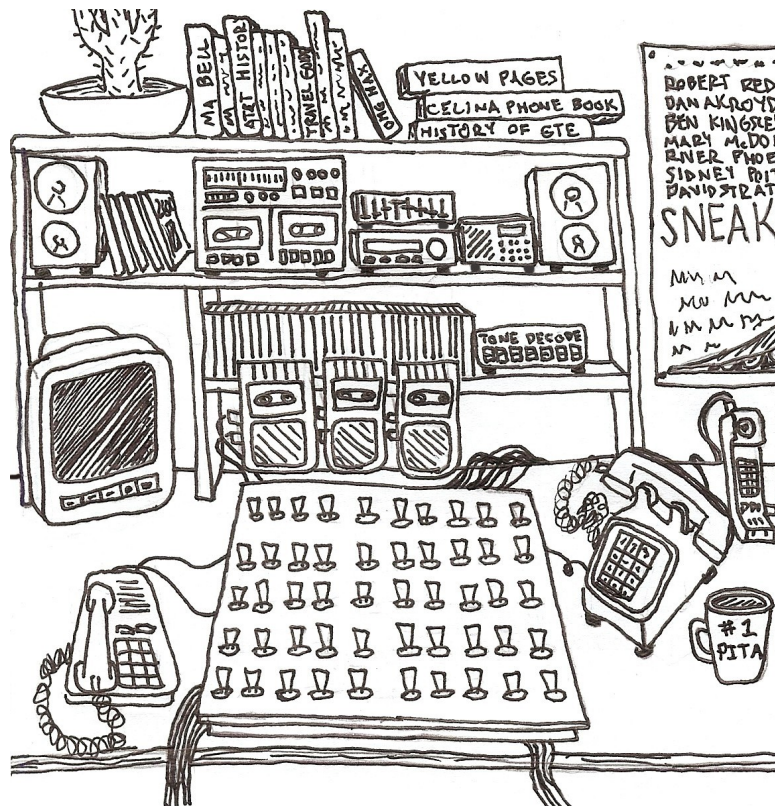 MA BELL
AT&T HISTOR
TRAVEL
OMG HAX
YELLOW PAGES
CELINA PHONE BOOK
HISTORY OF GTE
ROBERT RED
DAN AKROYD
BEN KINGSLE
MARY McDO
RIVER PHOE
SIDNEY POIT
DAVID STRAT
SNEAK
TONE DECODE
#1
PITA